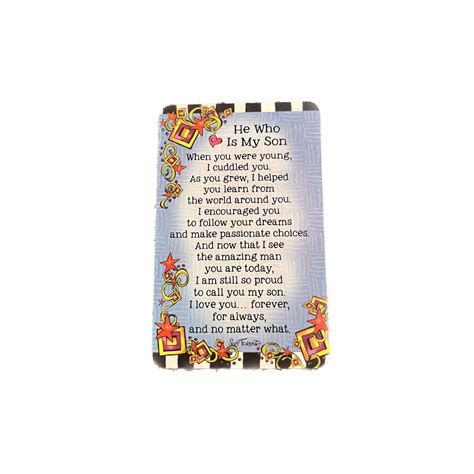 He Who
Is My Son
When you were young,
I cuddled you.
As you grew, I helped
you learn from
the world around you.
I encouraged you
to follow your dreams
and make passionate choices.
And now that I see
the amazing man
you are today,
I am still so proud
to call you my son.
I love you... forever,
for always,
and no matter what.